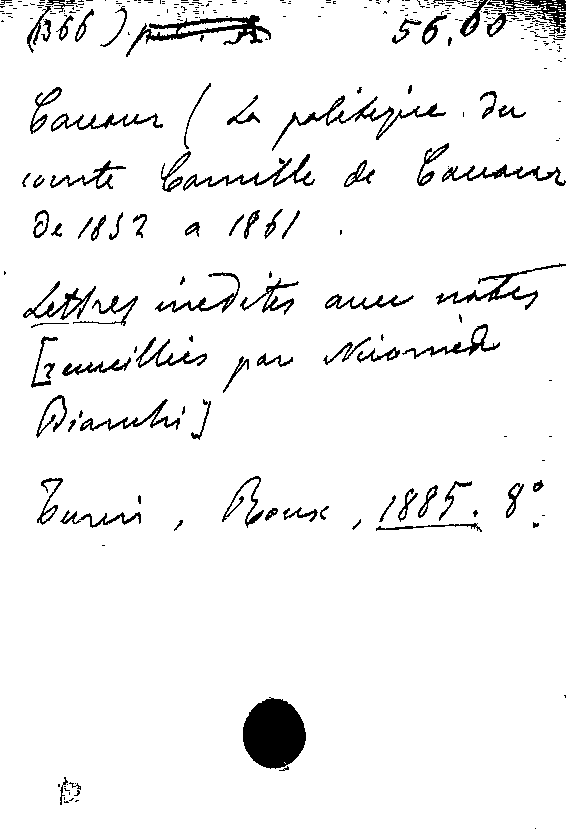 (366) 56.60
Cavour (La politique du
comte Camille de Cavour
de 1852 a 1861.
Lettres inedites avec notes
[recueillies par Nicomède
Bianchi]
Turin, Roux, 1885. 8°.